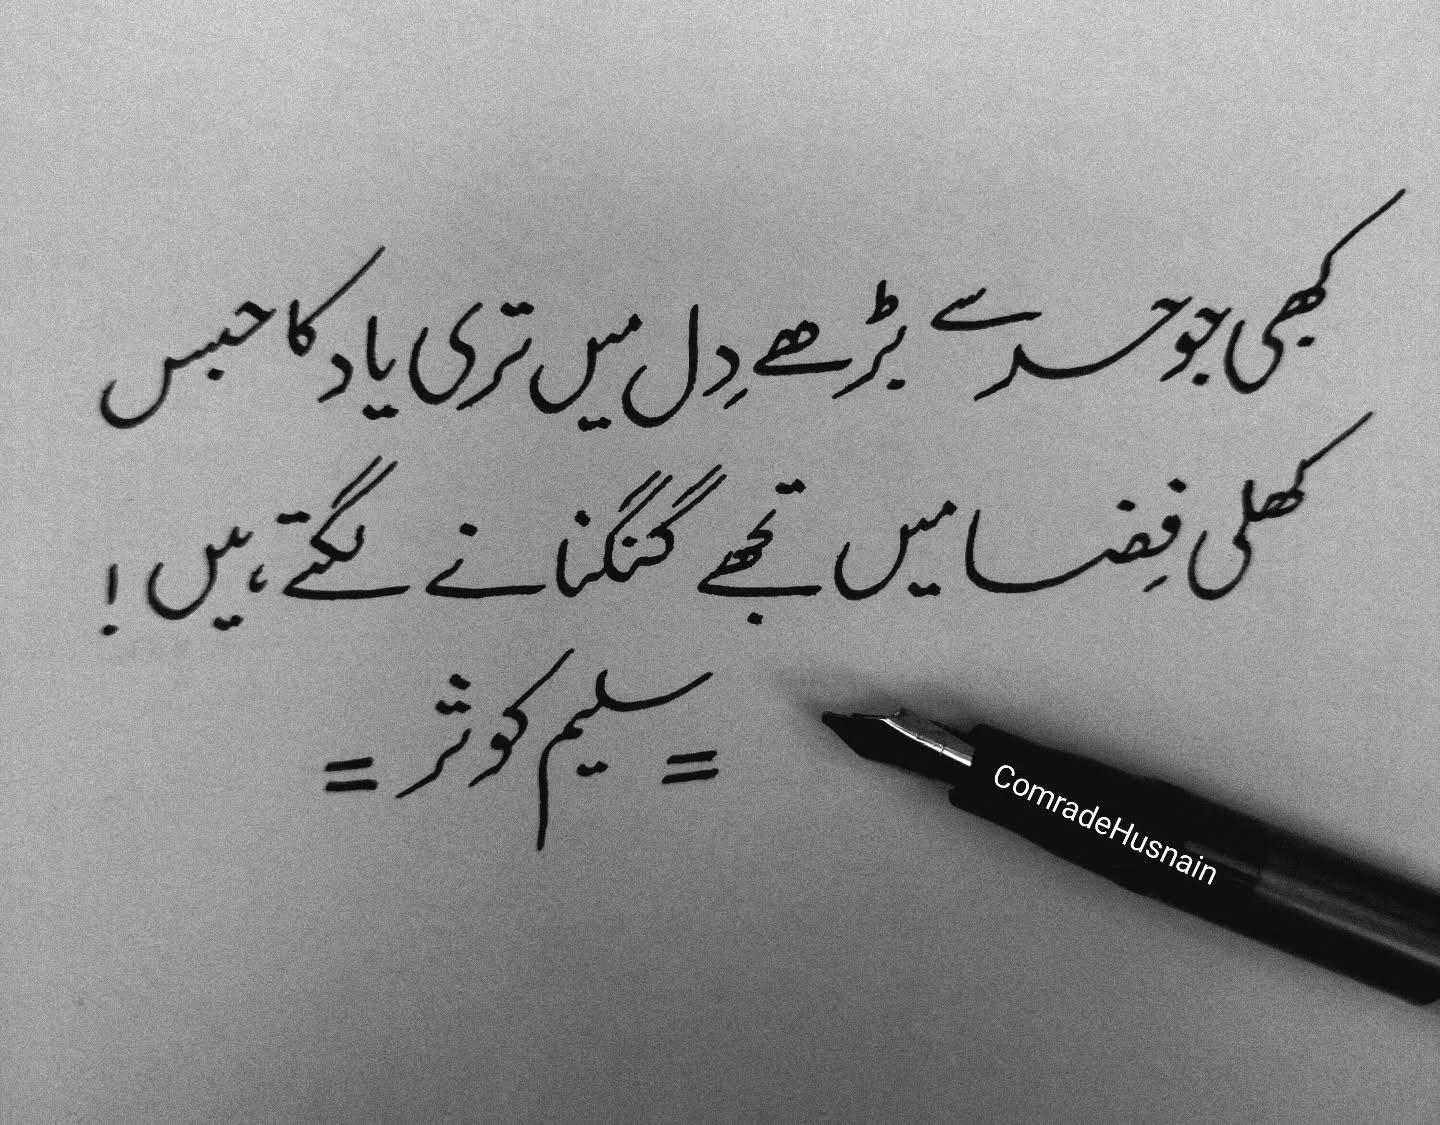 کبھی جو حد سے بڑھے دِل میں تری یاد کا حبس
کھلی فِضا میں تجھے گنگنانے لگتے ہیں !
= سلیم کوثر =
ComradeHusnain